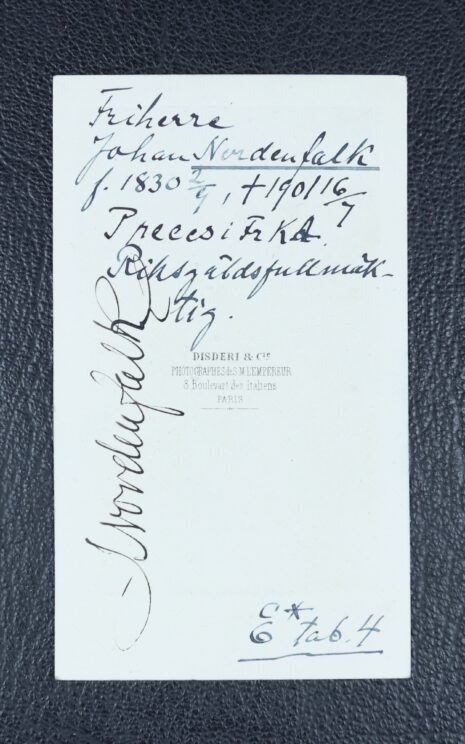 Friherre
Johan Nordenfalk
f. 1830 2/9, † 1901 16/7
Preces i FrKA.
Riksgäldsfullmäk-
tig.
Nordenfalk
DISDERI & Cie
PHOTOGRAPHES de S.M. L'EMPEREUR
8. Boulevart des Italiens
PARIS
E* tab. 4